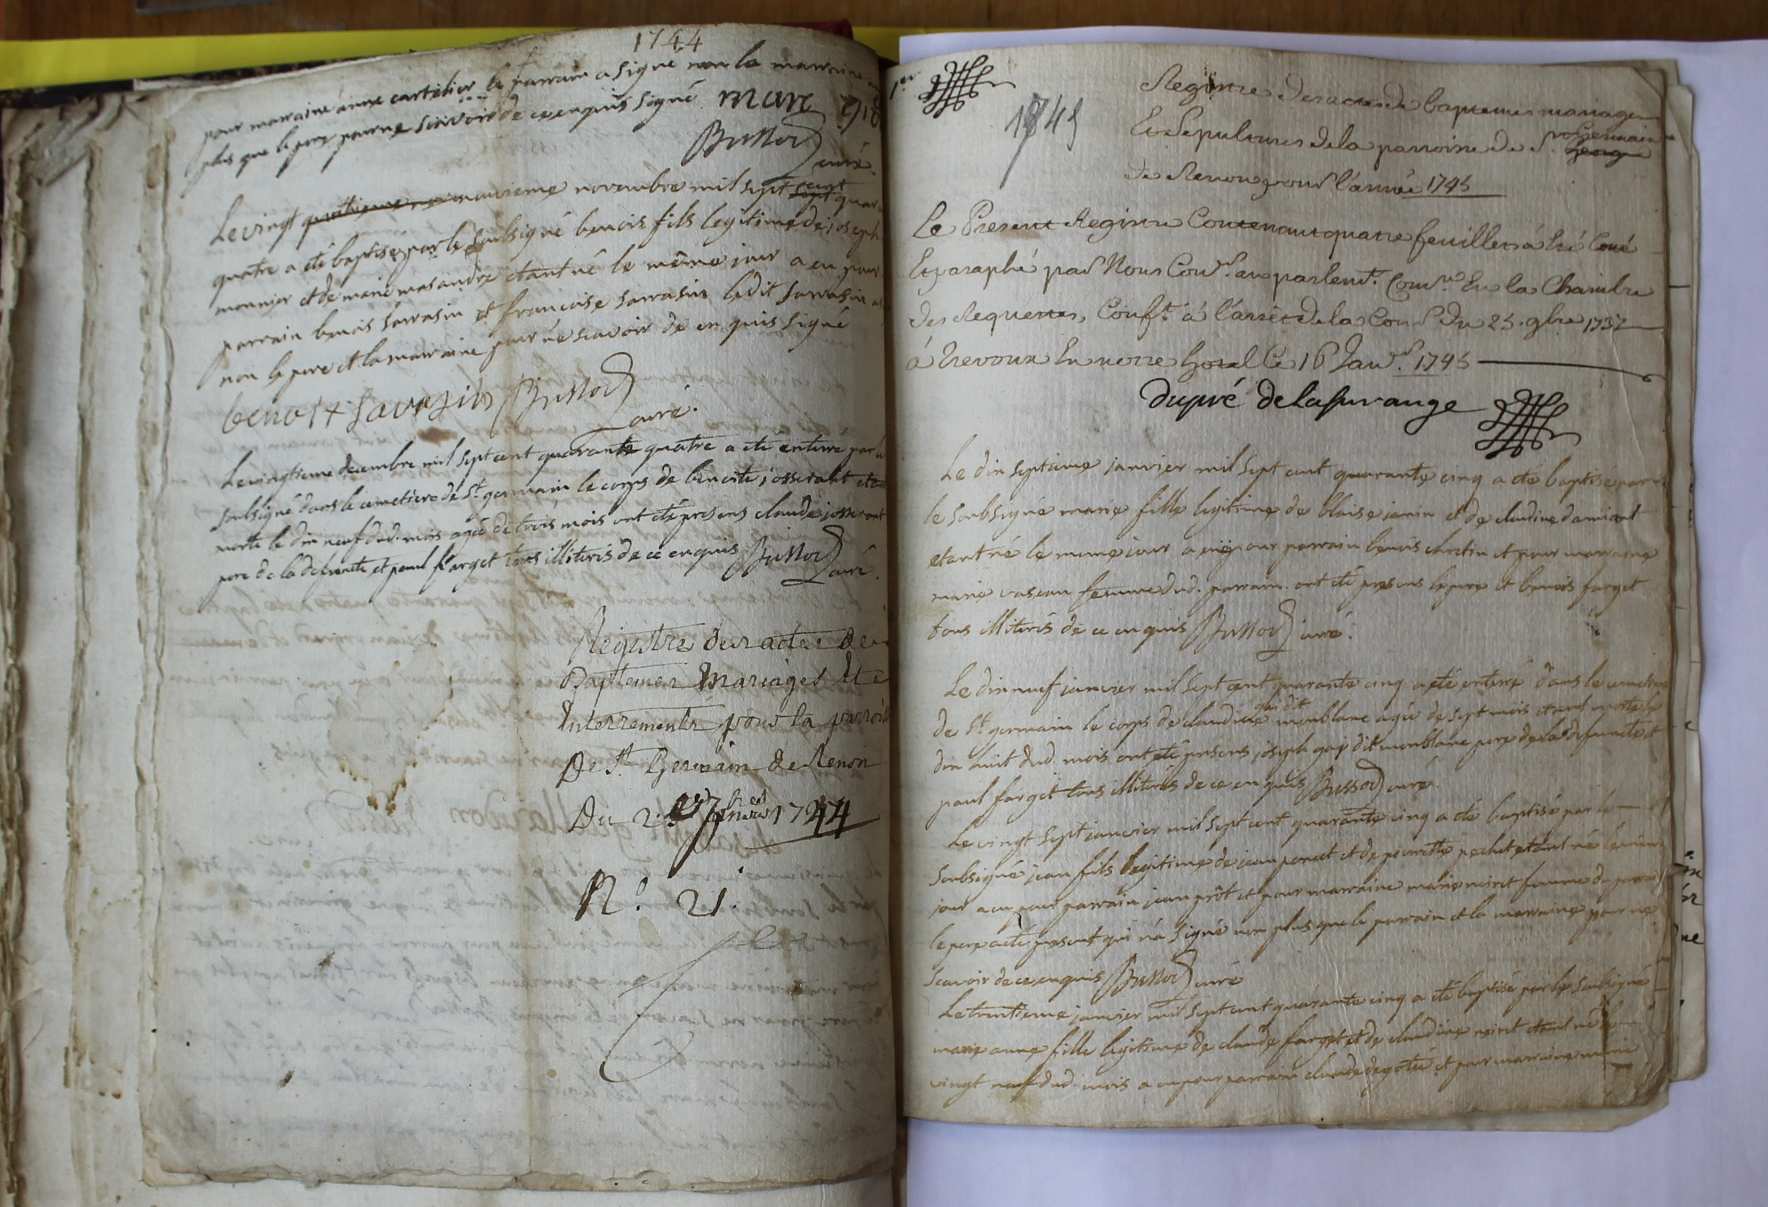 1744
pour marraine anne cartelier le parrain a signé non la marraine
plus que le pere pour ne scavoir de ce enquis signé marc
Bussod curé
Le vingt neuvieme novembre mil sept cent quar
quatre a été baptisé par le soubsigné benois fils legitime de joseph
monnier et de marie masandre etant né le même jour a eu pour
parrain benois sarrasin et francoise sarrasin ledit sarrasin a
non le pere et la marraine pour ne scavoir de ce enquis signé
benoit savrazin Bussod
curé.
Le vingtieme decembre mil sept cent quarante quatre a ete enterré par le
soubsigné dans le cemetiere de St. germain le corps de benoite josserant ete
morte le din neuf dud. mois agée de trois mois ont eté presens claude josserant
pere de la defuncte et paul farget tous illiteris de ce enquis Bussod
curé.
Registre des actes de
Baptemes Mariages Et
Enterrements pour la parroisse
De St. Germain de Renon
Du 1744
N.° 21.
1er
1745
Registre des actes de baptemes mariages
Et Sepultures de la parroisse de St. Germain
de Renon pour l'année 1745
Le Present Registre Contenant quatre feuillets a Eté Coué
Et paraphé par Nous Conr. au parlemt. Comre. En la Chambre
des Requestes, Conft. à l'arrêt de la Cour Du 25. 9bre 1737
à Trevoux En notre hotel Ce 16 Janvr. 1745
dupré delasurange
Le din septieme janvier mil sept cent quarante cinq a eté baptisé par
le soubsigné marie fille legitime de blaise janin et de claudine damians
etant né le meme jour a eu pour parrain benois chretin et pour marraine
marie vaseau femme dud. parrain. ont eté presens le pere et benois farget
tous illiteris de ce enquis Bussod curé.
Le din neuf janvier mil sept cent quarante cinq a eté enterré dans le cemetiere
de St. germain le corps de claudine gui dit monblanc agée de sept mois etant morte le
din huit dud. mois ont eté presens joseph gui dit monblanc pere de la defuncte et
paul farget tous illiteris de ce enquis Bussod curé
Le vingt sept janvier mil sept cent quarante cinq a eté baptisé par le
soubsigné jean fils legitime de jean poncet et de pierrette pechet etant né le même
jour a eu pour parrain jean prôt et pour marraine marie noiret femme du parrain
le pere a eté present qui n'a signé non plus que le parrain et la marraine pour ne
scavoir de ce enquis Bussod curé
Le trentieme janvier mil sept cent quarante cinq a eté baptisé par le soubsigné
marie anne fille legitime de claude farget et de claudine noiret etant né le
vingt neuf dud. mois a eu pour parrain claude degotte et pour marraine marie